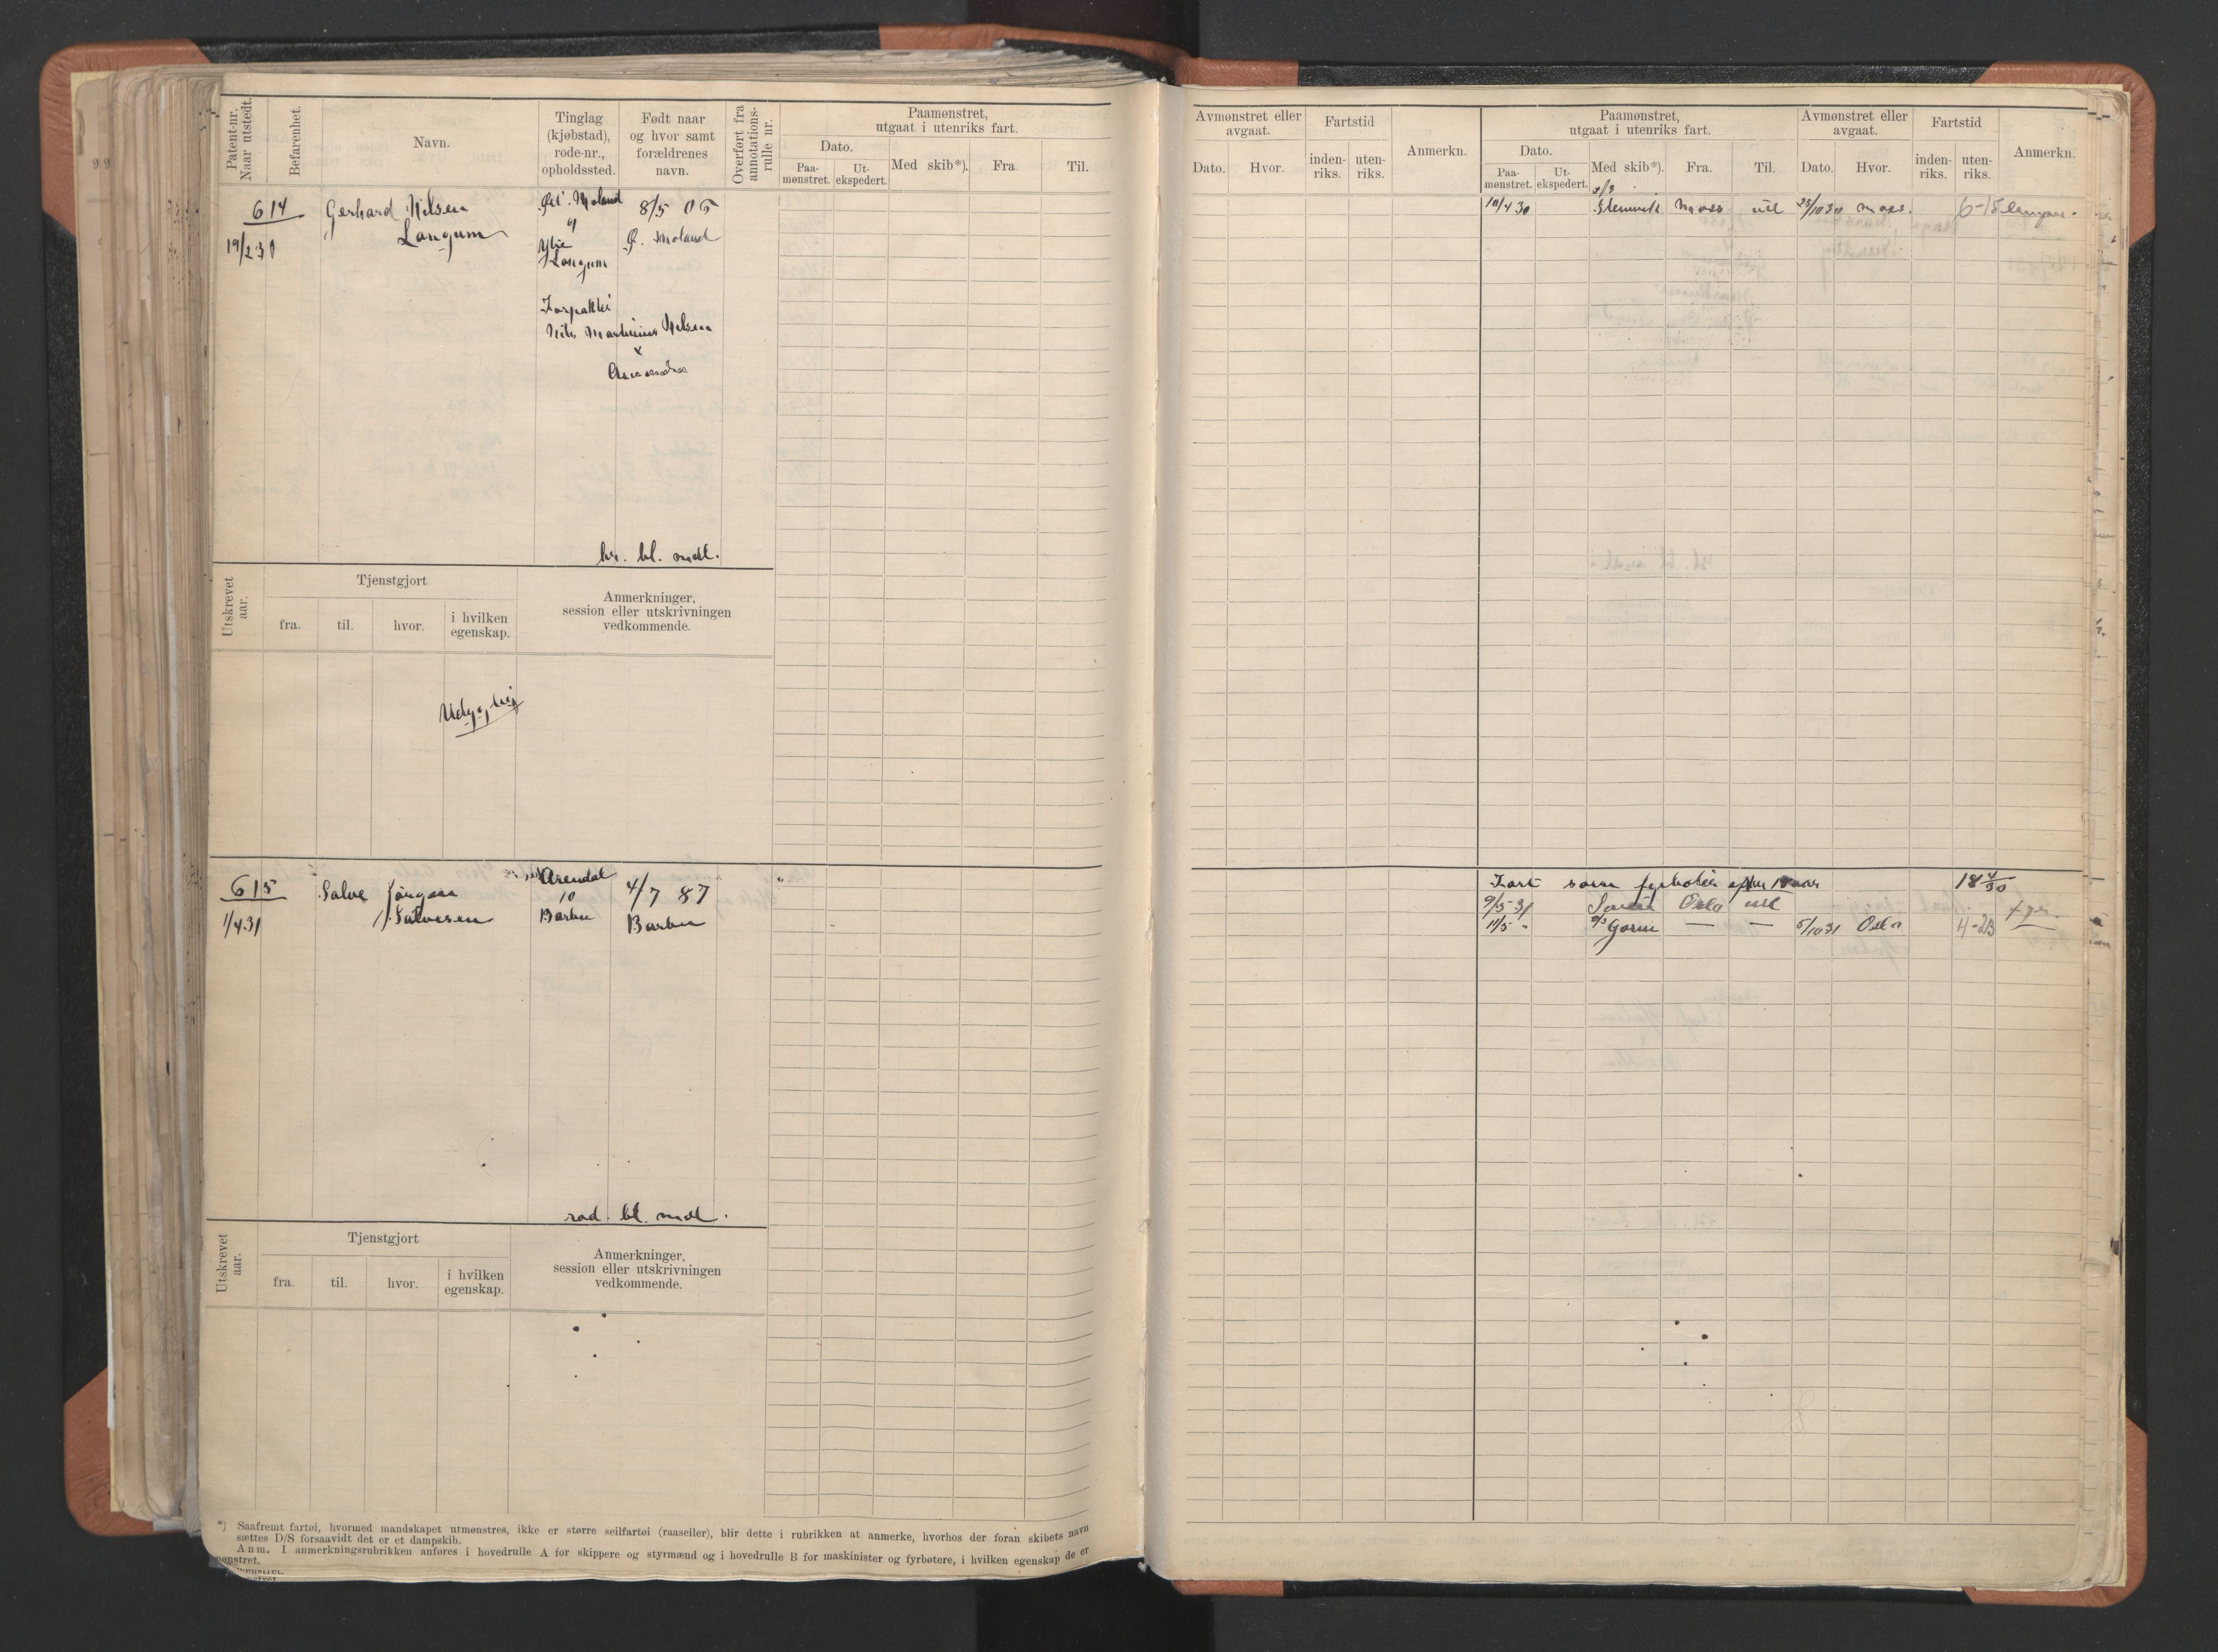 Patent-nr. Naar utstedt.
Befarenhet.
Navn.
Tinglag (kjøbstad), rode-nr., opholdssted.
Født naar og hvor samt forældrenes navn.
Overført fra annotations-rulle nr.
Paamønstret, utgaat i utenriks fart.
Dato.
Paa-mønstret.
Ut-ekspedert.
Med skib*).
Fra.
Til.
614
Gerhard Nilsen
Langum
Øst. Moland
8/5 05
19/2 30
Ø. Moland
Langum
Nils Martinius Nilsen
x
Amanda
br. bl. mdl.
Utskrevet aar.
Tjenstgjort
fra.
til.
hvor.
i hvilken egenskap.
Anmerkninger, session eller utskrivningen vedkommende.
615
Salve Jørgen
Salvesen
Arendal
10
Barbu
4/7 87
Barbu
1/4 31
rød. bl. mdl.
Utskrevet aar.
Tjenstgjort
fra.
til.
hvor.
i hvilken egenskap.
Anmerkninger, session eller utskrivningen vedkommende.
*) Saafremt fartøi, hvormed mandskapet utmønstres, ikke er større seilfartøi (raaseiler), blir dette i rubrikken at anmerke, hvorhos der foran skibets navn
sættes D/S forsaavidt det er et dampskib.
Anm. I anmerkningsrubrikken anføres i hovedrulle A for skippere og styrmænd og i hovedrulle B for maskinister og fyrbøtere, i hvilken egenskap de er
mønstret.
Avmønstret eller avgaat.
Dato.
Hvor.
Fartstid
inden-riks.
uten-riks.
Anmerkn.
Paamønstret, utgaat i utenriks fart.
Dato.
Paa-mønstret.
Ut-ekspedert.
Med skib*).
Fra.
Til.
Avmønstret eller avgaat.
Dato.
Hvor.
Fartstid
inden-riks.
uten-riks.
Anmerkn.
10/4 30 Glemmen Moss utl 25/10 30 Moss. 6-15 lemper.
Fart som fyrbøter efter 15 aar
9/5 31 Oslo utl
11/5 - D/S Gorm — — 5/10 31 Oslo 4-23 fyr.